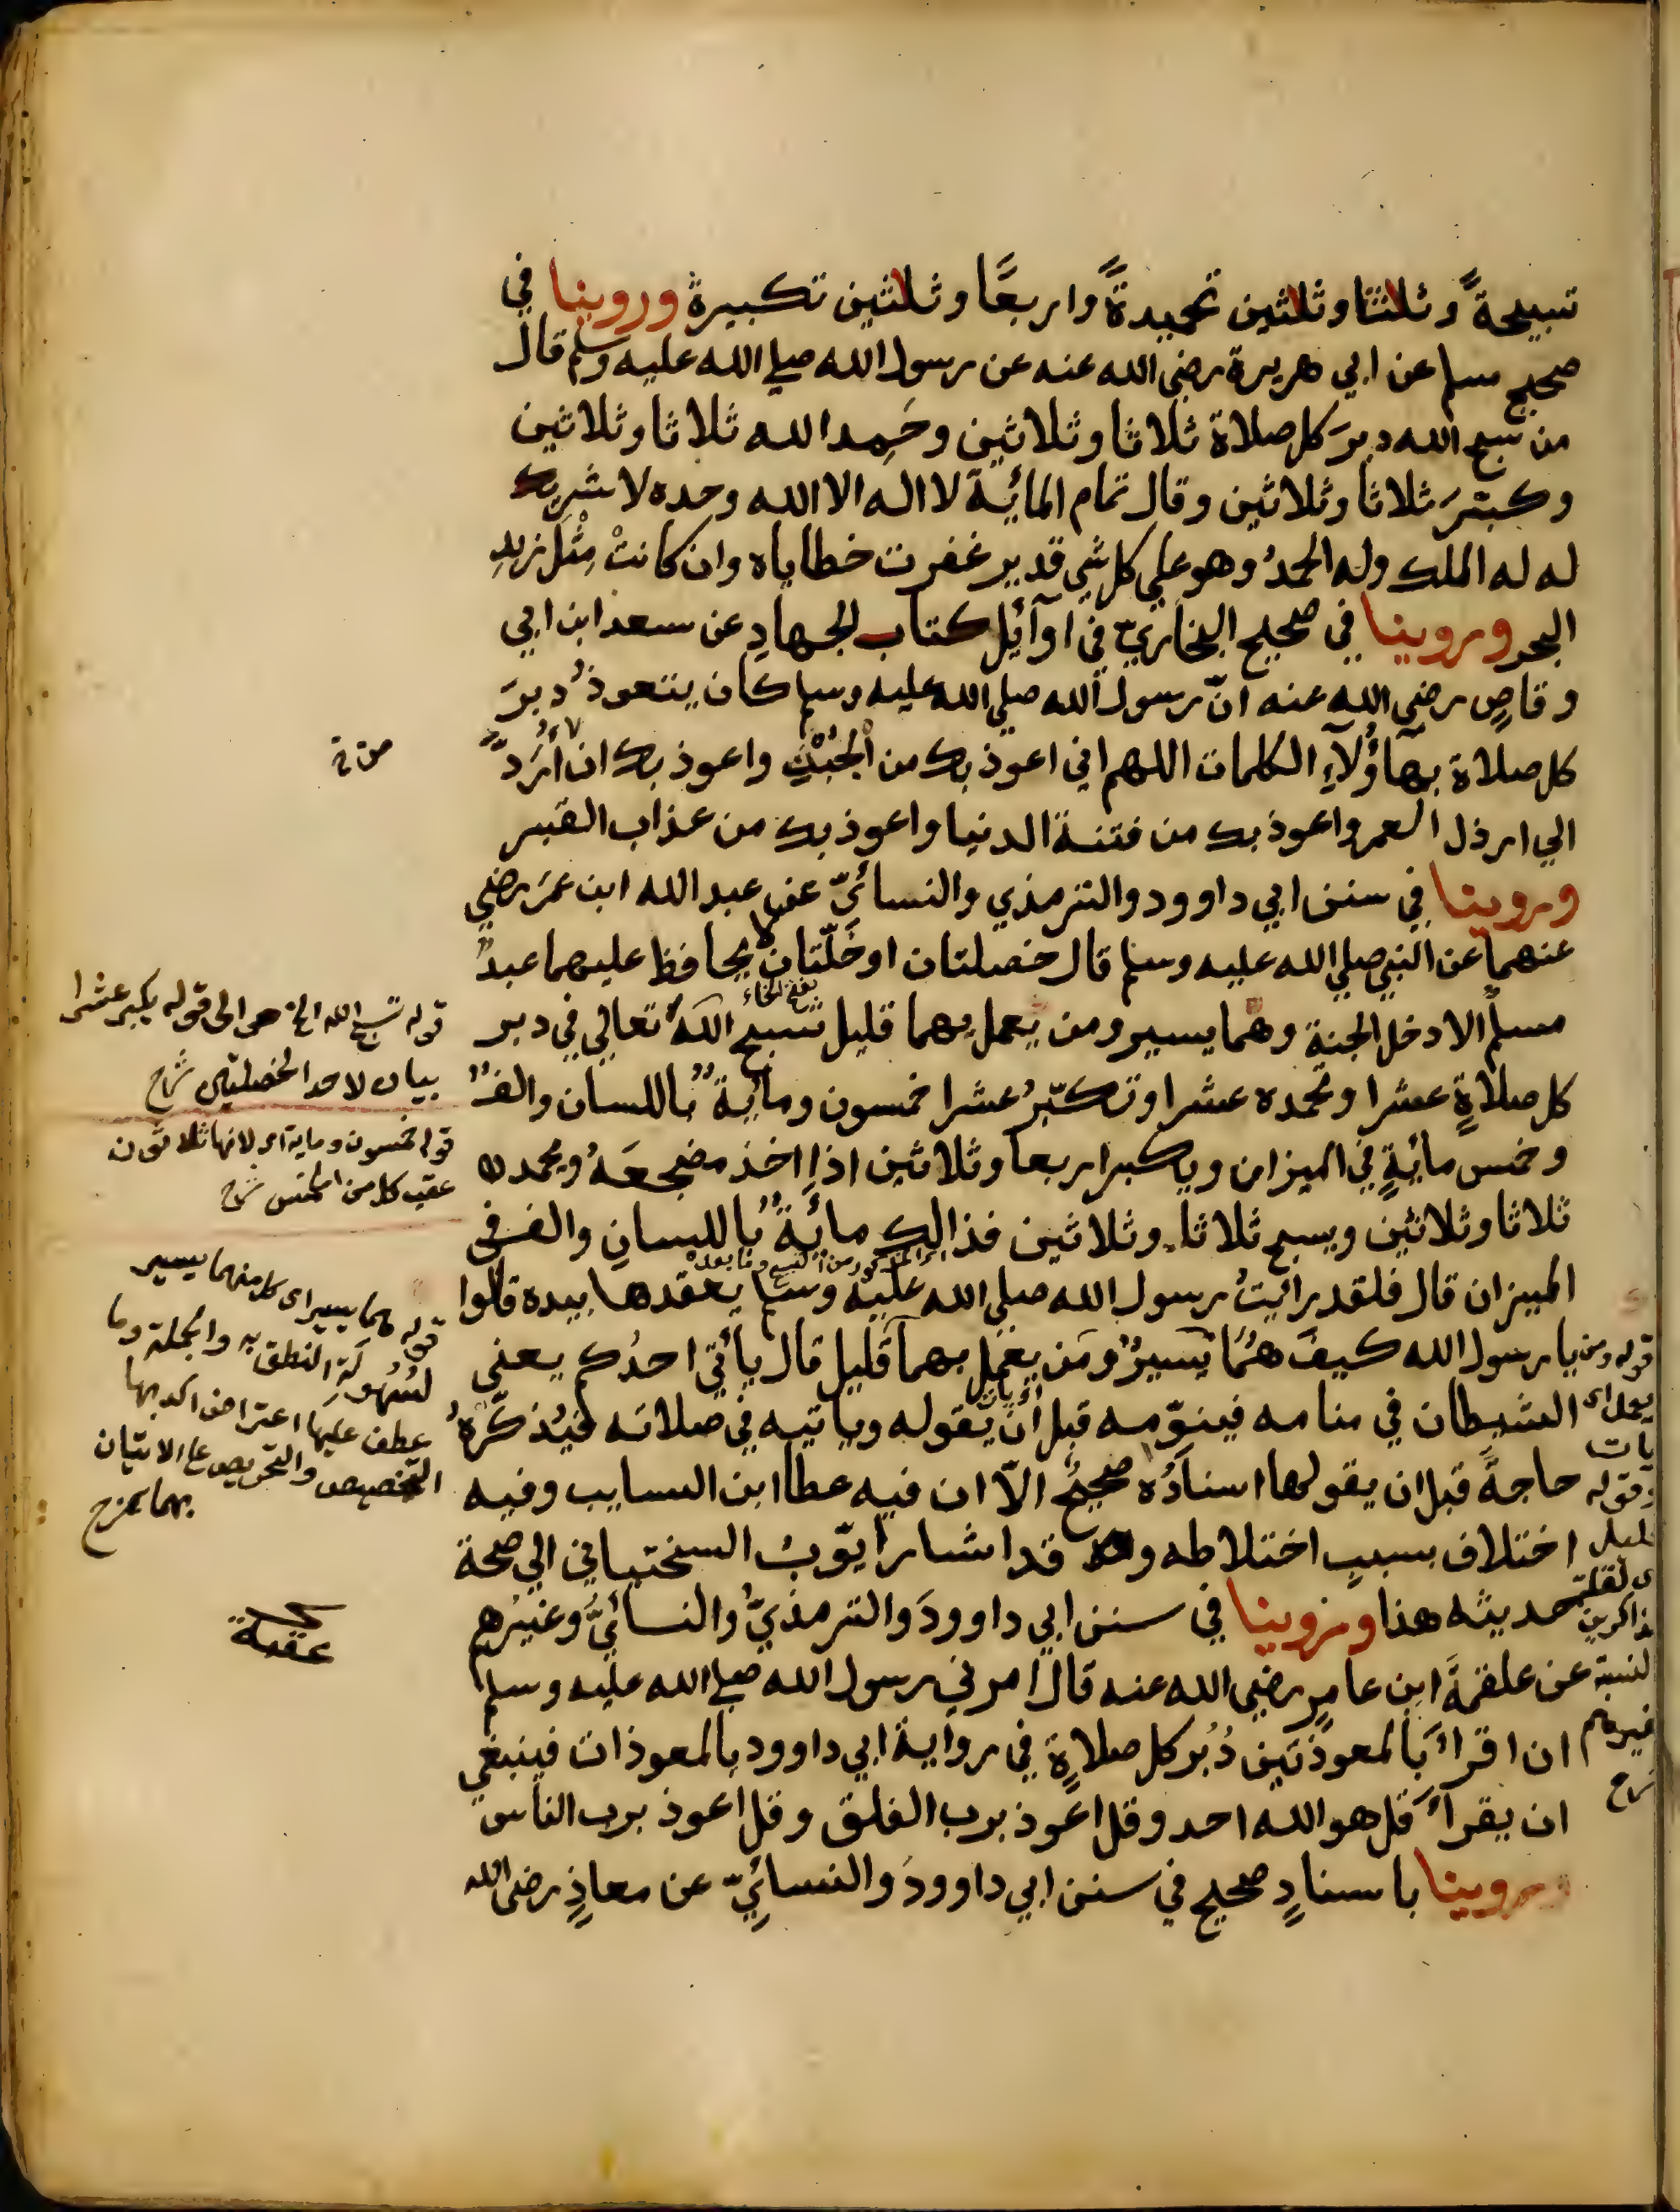 تسبيحةً وثلثا وثلثين تحميدةً واربعًا وثلثين تكبيرة وروينا في
صحيح مسلم عن ابي هريرة رضي الله عنه عن رسول الله صلي الله عليه وسلم قال
من سبح الله دبرَ كل صلاة ثلاثا وثلاثين وحَمِد الله ثلاثا وثلاثين
وكبّرَ ثلاثا وثلاثين وقال تمام المائية لا اله الا الله وحده لا شريك
له له الملك وله الحمدُ وهو علي كل شي قدير غفرت خطاياه وان كانتْ مِثْلَ زبدِ
البحر وروينا في صحيح البخاريّ في اوآئِل كتاب الجهادِ عن سعد ابن ابي
وقاصٍ رضي الله عنه انّ رسول الله صلي الله عليه وسلم كان يتعوذُ دبرَ
كل صلاة بهآؤُلآءِ الكلمات اللهم اني اعوذ بك من الجُبْنِ واعوذ بك ان اُرَدّ
الي ارذل العمر واعوذ بك من فتنة الدنيا واعوذ بك من عذاب القبر
وروينا في سنن ابي داوود والترمذي والنسائيّ عن عبد الله ابن عمرَ رضي
عنهما عن النبي صلي الله عليه وسلم قال خصلتان او خَلّتان لا يحافظ عليهما عبدٌ
بفتح الخاء
مسلمٌ الا دخل الجنة وهما يسير ومن يعمل بهما قليل تسبح اللهَ تعالي في دبر
كل صلاةٍ عشرا وتحمده عشرا وتكبّرُ عشرا خمسون ومائيةٌ باللسان والفٌ
وخمس مائيةٍ في الميزان ويكبر اربعا وثلاثين اذا اخذ مضجعَهُ ويحمده
ثلاثا وثلاثين ويسبح ثلاثا وثلاثين فذالك مائيةٌ باللسان والف في
المذكور من التسبيح وما بعده
الميزان قال فلقد رائيتُ رسول الله صلي الله عليه وسلم يعقدها بيده قالوا
يا رسول الله كيفَ هُمَا يَسيرٌ ومَن يعمل بهما قليل قال يأتي احدُكم يعني
الشيطان في منامه فينوّمه قبل أن يقوله وياتيه في صلاته فيُذكّرهُ
حاجةً قبل ان يقولها اسنادُه صحيحٌ الاّ ان فيه عطا ابن السايب وفيه
اختلاف بسبب اختلاطه وقد اشار ايّوبُ السختياني الي صحة
حديثه هذا وروينا في سنن ابي داوودَ والترمذيِّ والنسائيِّ وغيرُهم
عن علقمةَ ابن عامرٍ رضي الله عنه قال امرني رسول الله صلي الله عليه وسلم
ان اقراءَ بالمعوذتين دُبُر كل صلاةٍ في رواية ابي داوود بالمعوذات فينبغي
ان يقراءَ قل هو الله احد وقل اعوذ برب الفلق وقل اعوذ برب الناس
وروينا باسنادٍ صحيح في سنن ابي داوودَ والنسائيّ عن معاذٍ رضي الله
قوله تسبح الله الخ هو الى قوله يكبر عشرا
بيان لاحد الخصلتين شرح
قوله خمسون وماية اى لانها ثلاثون
عقب كل من الخمس شرح
قوله هما يسير اى كل منهما يسير
لسُهولَةِ النطق به والجملة وما
عطف عليها اعتراض اكد بها
التخصيص والتحريص على الاتيان
بهما
عقبة
قوله ومن
يعمل اى
يات
وقوله
قليل
اى لقلة
الذاكرين
بالنسبة
لغيرهم
شرح